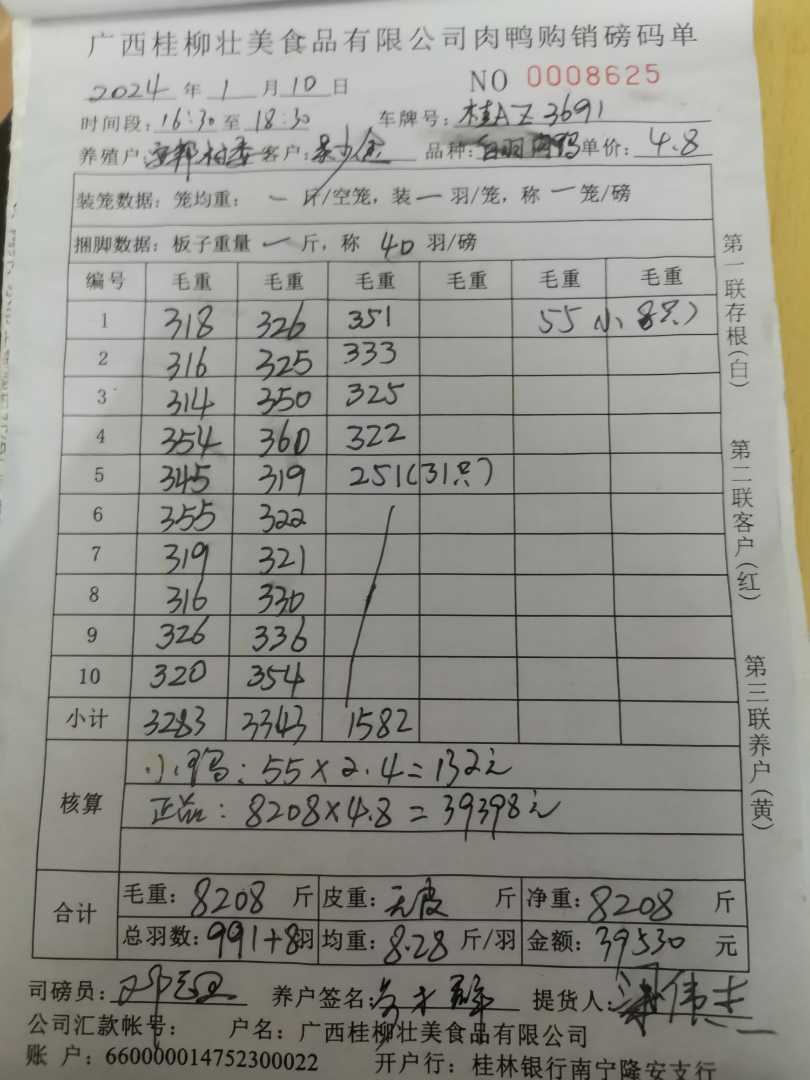 广西桂柳壮美食品有限公司肉鸭购销磅码单
2024 年 1 月 10 日 NO 0008625
时间段: 16:30 至 18:30 车牌号: 桂AZ3691
养殖户: 客户: 品种: 白羽肉鸭 单价: 4.8
装笼数据: 笼均重: 一 斤/空笼, 装 一 羽/笼, 称 一 笼/磅
捆脚数据: 板子重量 一 斤, 称 40 羽/磅
编号 毛重 毛重 毛重 毛重 毛重 毛重
1 318 326 351 55 小 8只)
2 316 325 333
3 314 350 325
4 354 360 322
5 345 319 251(31只)
6 355 322
7 319 321
8 316 330
9 326 336
10 320 354
小计 3283 3343 1582
核算
小鸭: 55×2.4=132元
正品: 8208×4.8=39398元
合计
毛重: 8208 斤 皮重: 无皮 斤 净重: 8208 斤
总羽数: 991+8羽 均重: 8.28 斤/羽 金额: 39530 元
司磅员: 养户签名: 提货人: 梁伟杰
公司汇款帐号: 户名: 广西桂柳壮美食品有限公司
账 户: 660000014752300022 开户行: 桂林银行南宁隆安支行
第一联存根(白)
第二联客户(红)
第三联养户(黄)